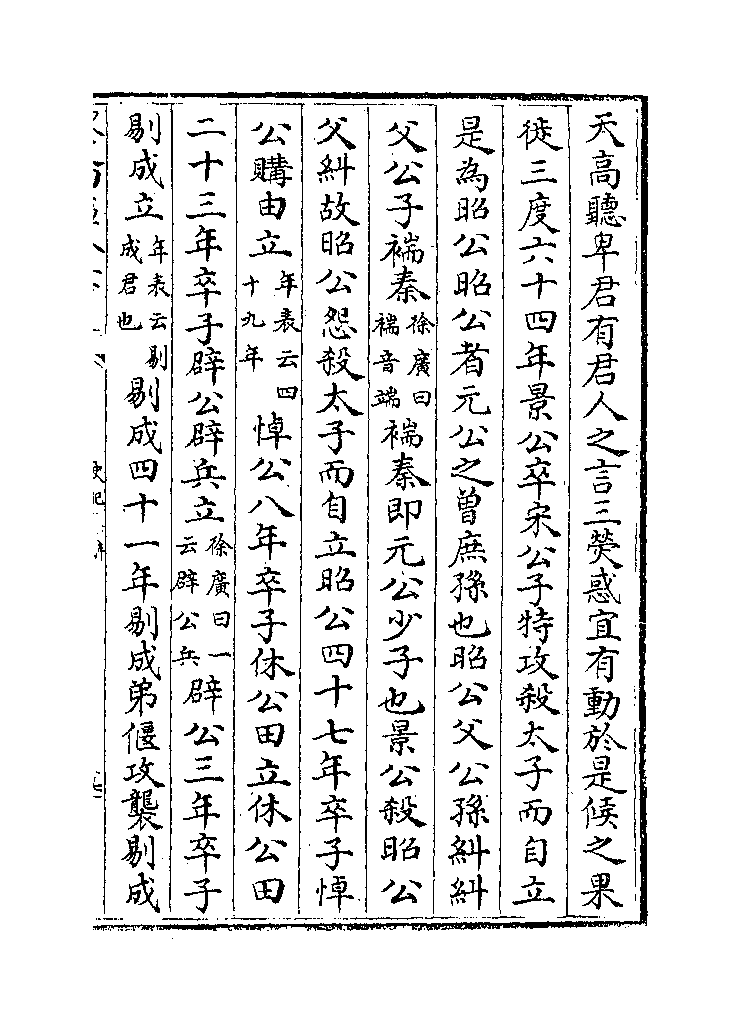 天高聽卑君有君人之言三熒惑宜有動於是候之果
徙三度六十四年景公卒宋公子特攻殺太子而自立
是為昭公昭公者元公之曾庶孫也昭公父公孫糾糾
父公子褍秦徐廣曰褍音端褍秦即元公少子也景公殺昭公
父糾故昭公怨殺太子而自立昭公四十七年卒子悼
公購由立年表云四十九年悼公八年卒子休公田立休公田
二十三年卒子辟公辟兵立徐廣曰一云辟公兵辟公三年卒子
剔成立年表云剔成君也剔成四十一年剔成弟偃攻襲剔成